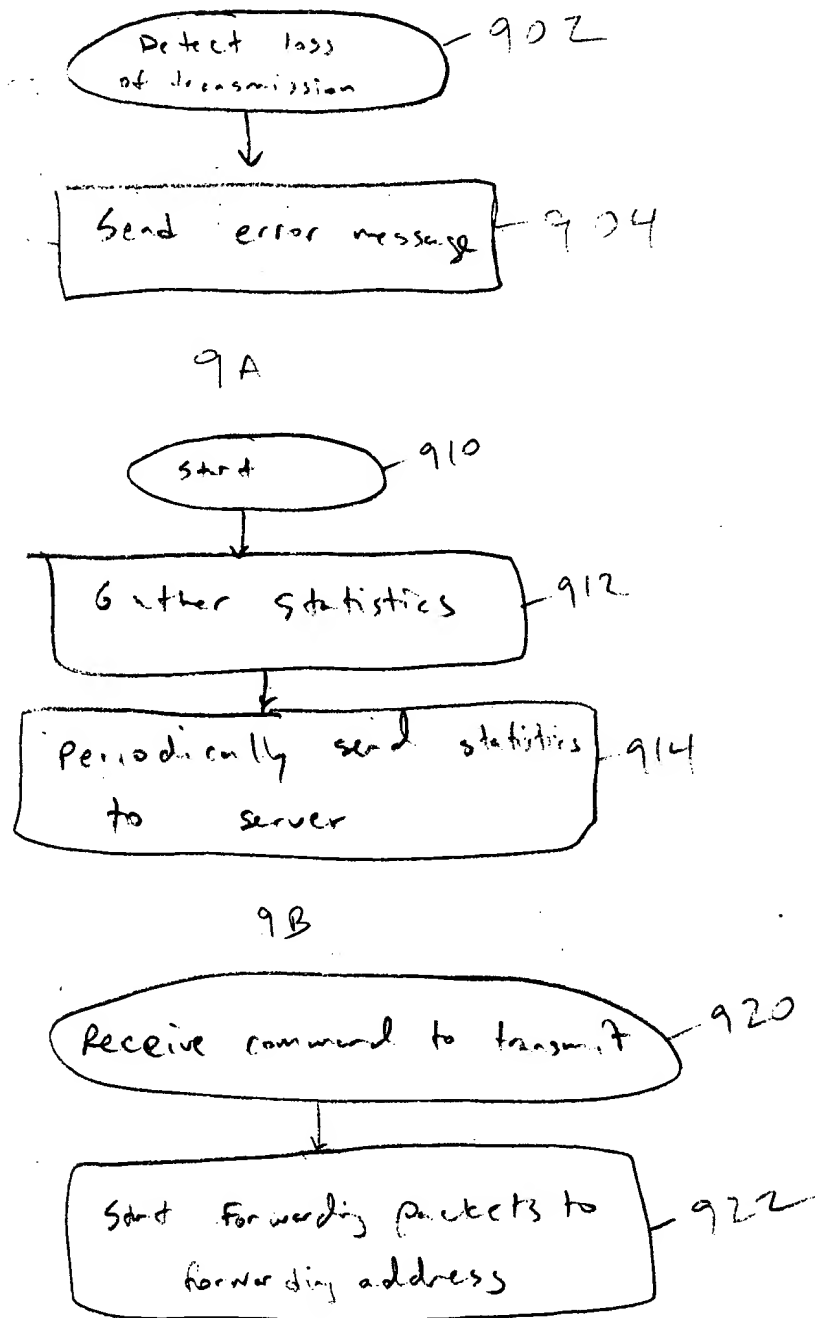 Detect loss 902
of transmission
Send error message 904
9A
Start 910
Gather statistics 912
Periodically send statistics 914
to server
9B
Receive command to transmit 920
Start forwarding packets to 922
forwarding address